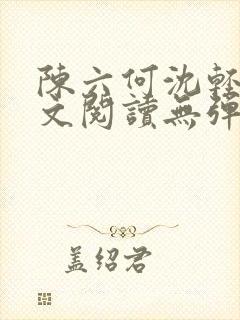 陳六何沈輕
文閱讀無彈
蓋紹君